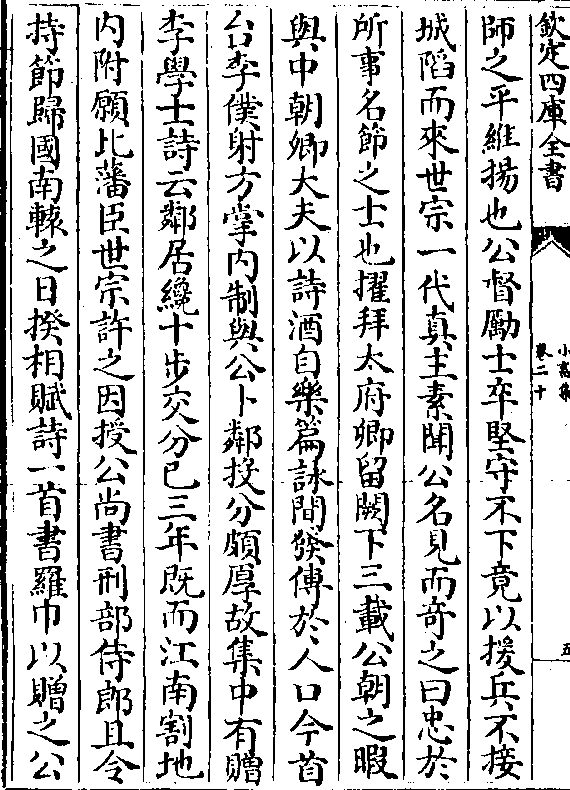 欽定四庫全書
小畜集
卷二十
五
師之平維揚也公督勵士卒堅守不下竟以援兵不接
城䧟而來世宗一代真主素聞公名見而竒之曰忠於
所事名節之士也擢拜太府卿留闕下三載公朝之暇
與中朝卿大夫以詩酒自樂篇詠間發傳於人口今首
台李僕射方掌内制與公卜鄰投分頗厚故集中有贈
李學士詩云鄰居纔十步交分已三年既而江南割地
内附願比藩臣世宗許之因授公尚書刑部侍郎且令
持節歸國南轅之日揆相賦詩一首書羅巾以贈之公